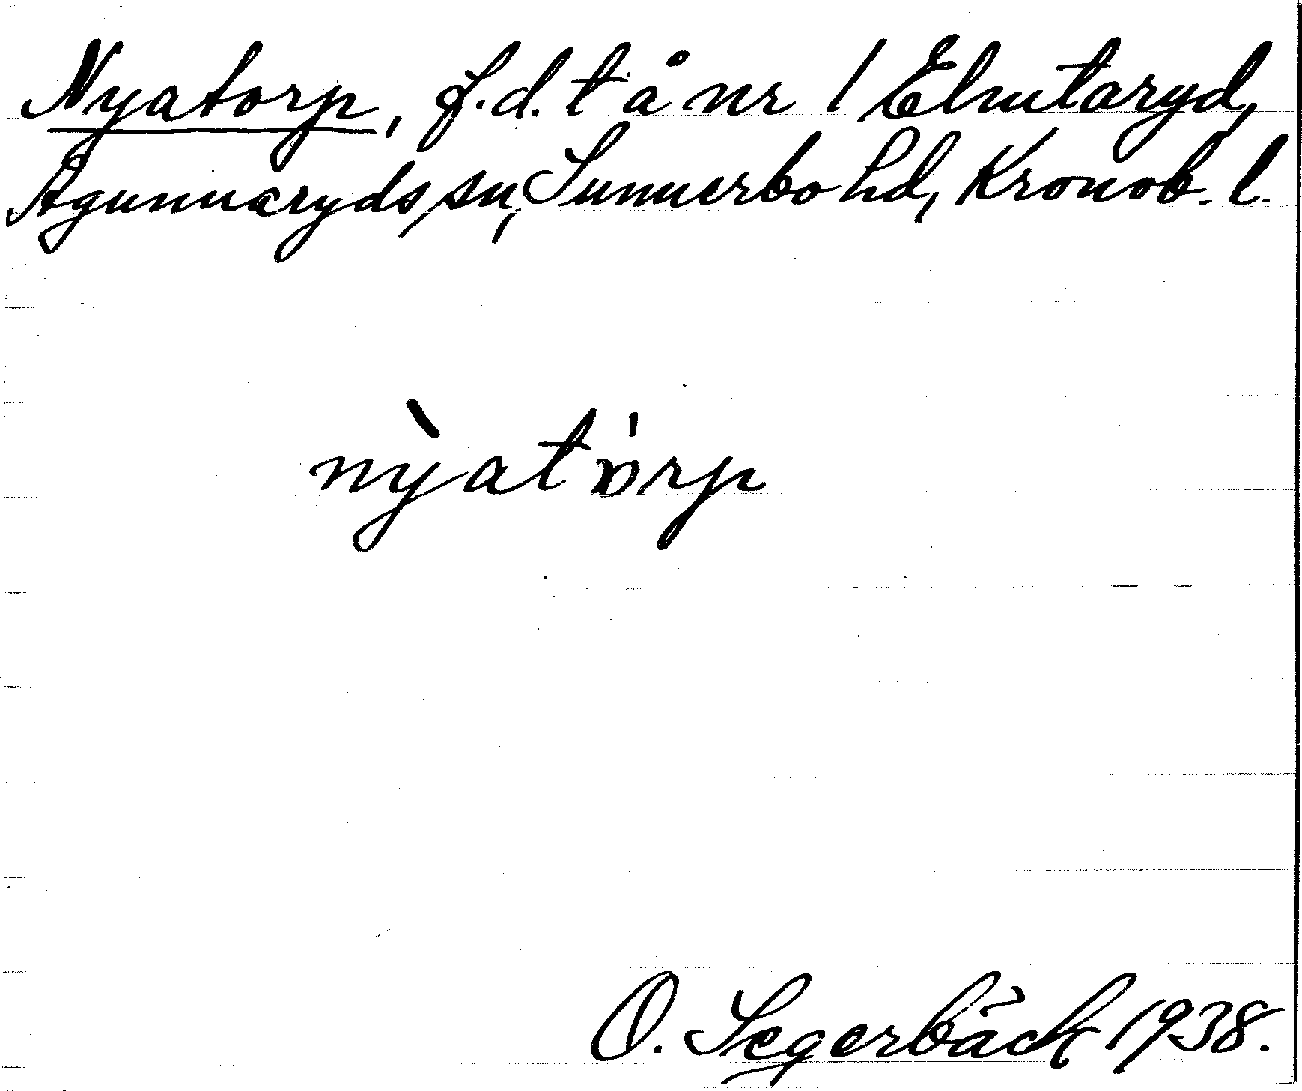 Nyatorp, f.d. t å nr 1 Elmtaryd,
Agunnaryds sn, Sunnerbo hd, Kronob. l.
nỳatörp
O. Segerbäck 1938.